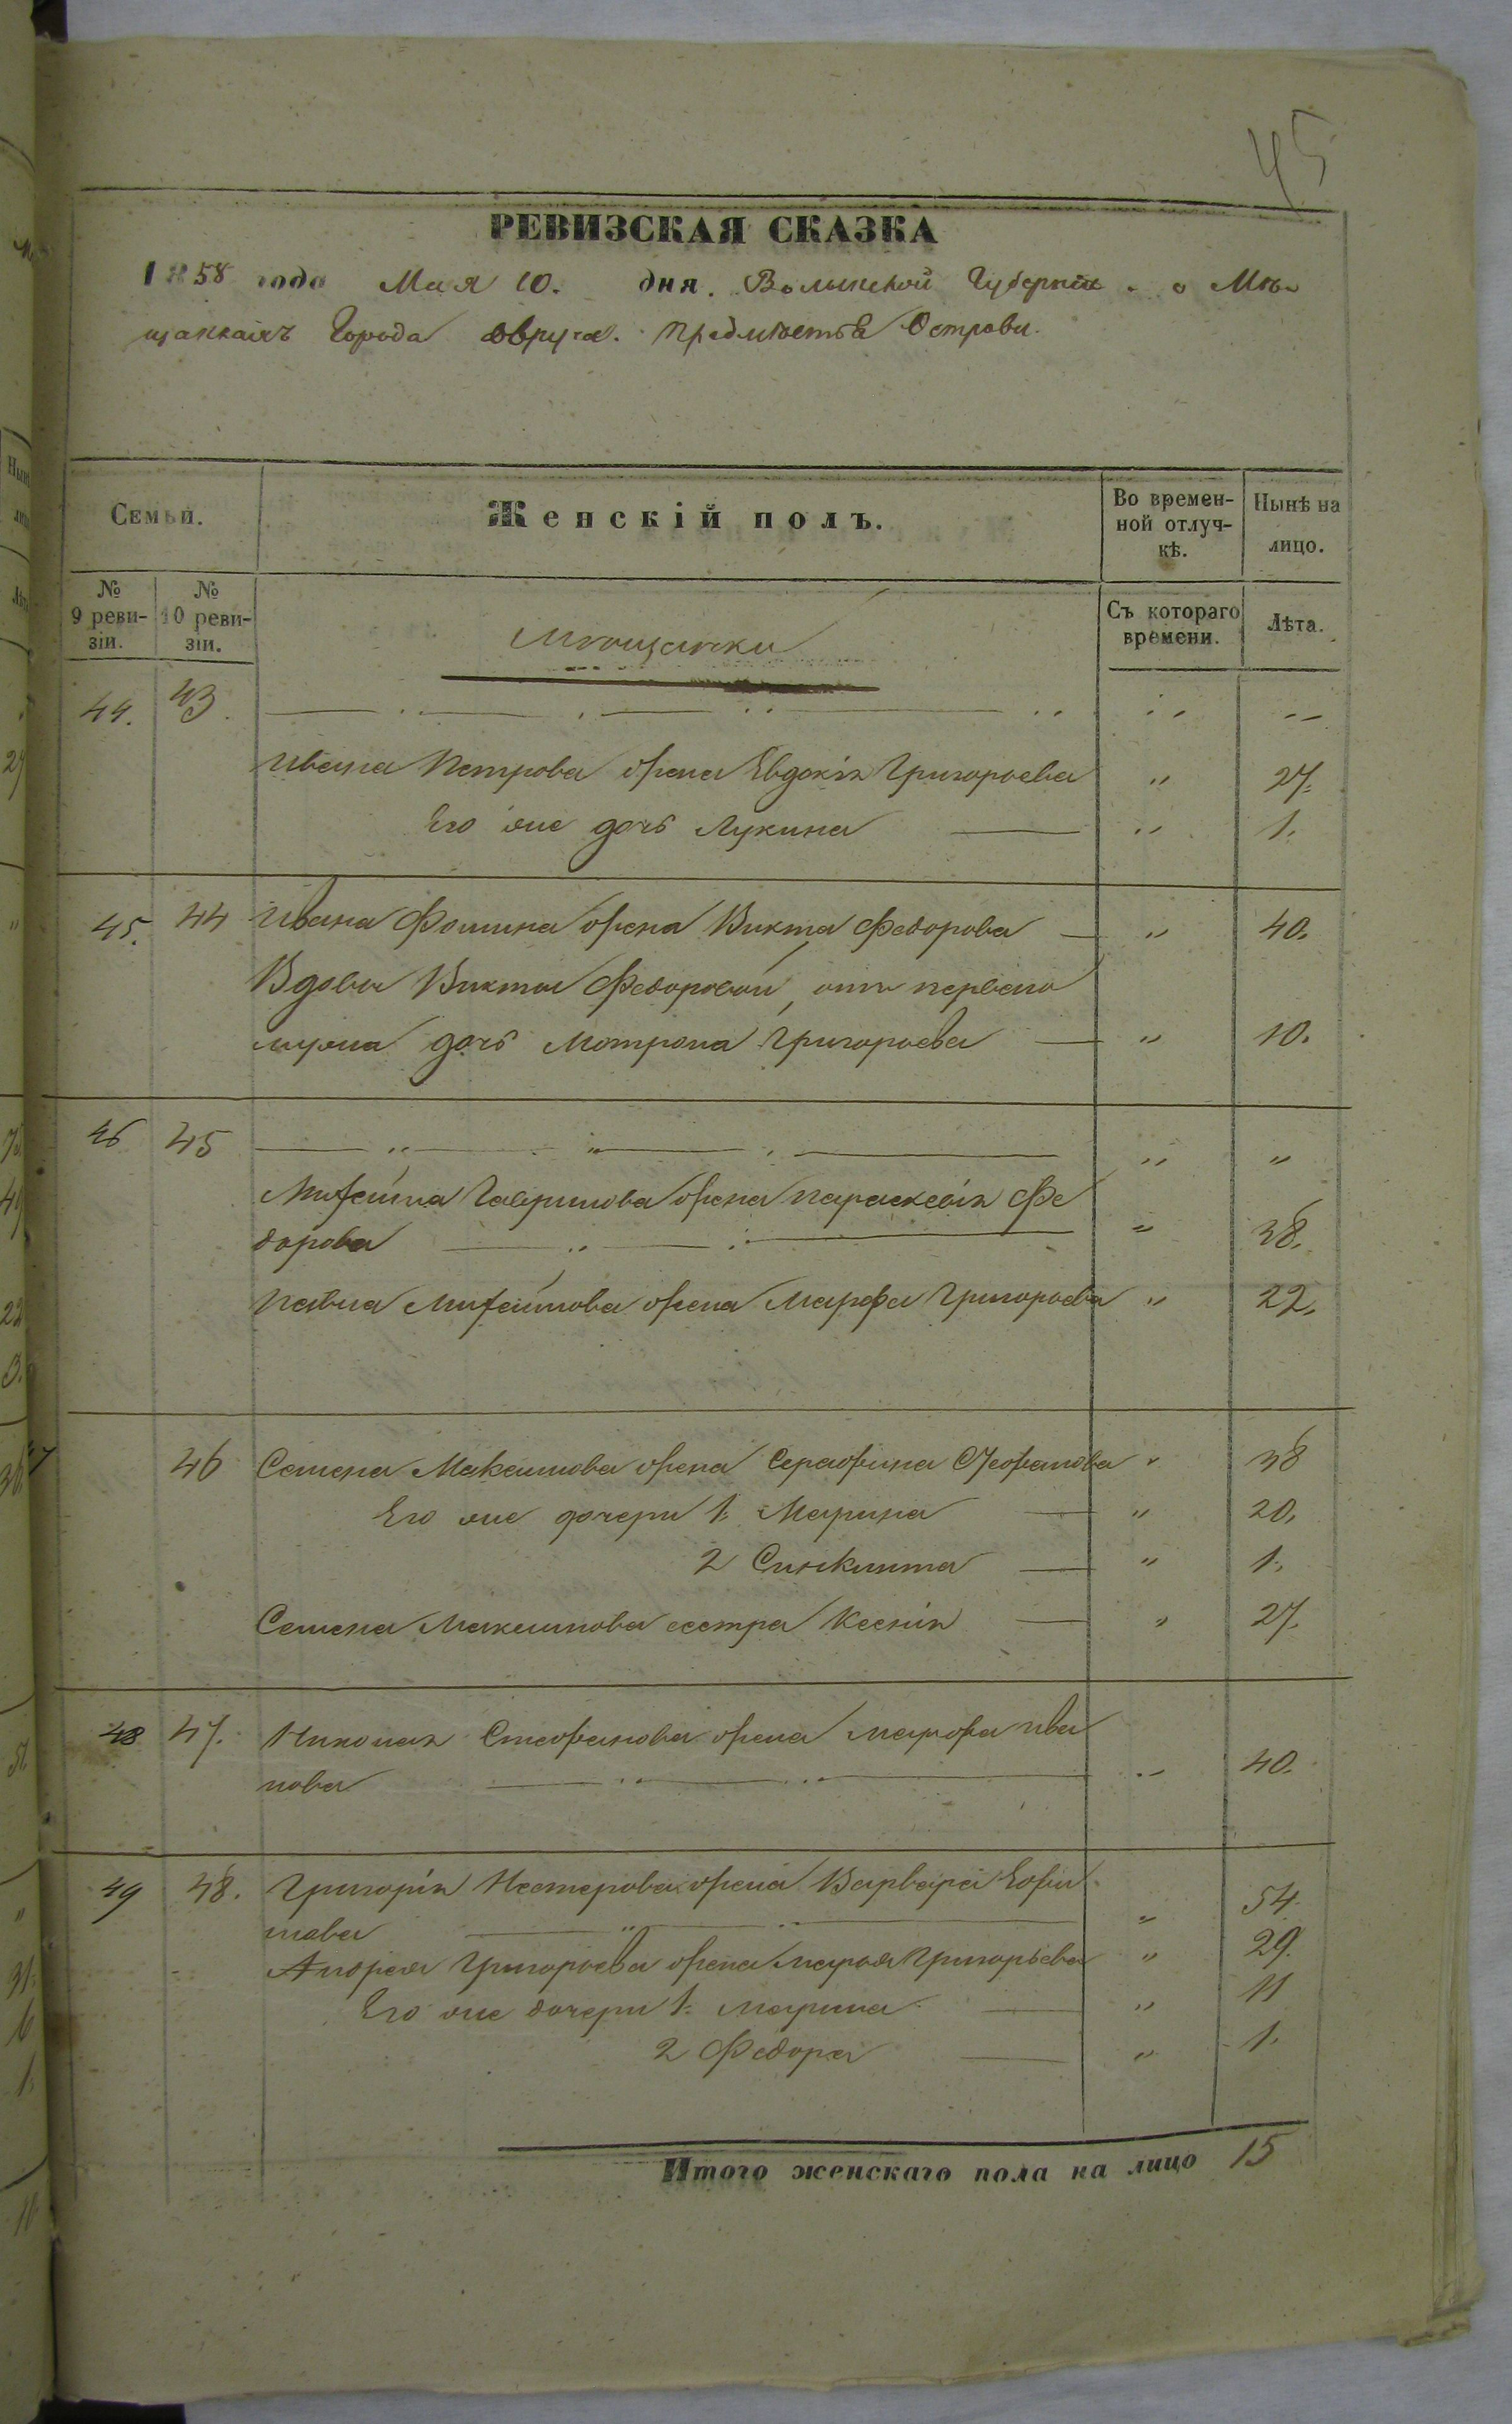 45
РЕВИЗСКАЯ СКАЗКА
1858 года Мая 10. дня. Волынской Губерніи. о Мѣ-
щанкахъ Города Овруча. предмѣстья Острова.
Семьи. Женскій полъ. Во времен- Нынѣ на
ной отлуч- лицо.
кѣ.
№ № Съ котораго Лѣта.
9 реви- 10 реви- времени.
зіи. зіи.
Мѣщанки
44. 43.
Ивана Петрова жена Евдокія Григорьева " 27.
Его же дочь Лукина " 1.
45. 44 Ивана Фомина жена Викта Федорова " 40.
Вдовы Викты Федоровой, отъ перваго
мужа дочь Мотрона Григорьева " 10.
46 45 " "
Михайла Гаврилова жена Параскевія Фе
дорова " 38.
Павла Михайлова жена Марфа Григорьева " 22.
47 46 Семена Максимова жена Серафина Стефанова " 38
Его же дочери 1. Марина " 20.
2 Синклита " 1.
Семена Максимова сестра Ксенія " 27.
48 47. Николая Стефанова жена Марфа Ива
нова " 40.
49 48. Григорія Нестерова жена Варвара Ефи
мова " 54.
Андрея Григорьева жена Марья Григорьева " 29.
Его же дочери 1. Марина " 11
2 Федора " 1.
Итого женскаго пола на лицо 15